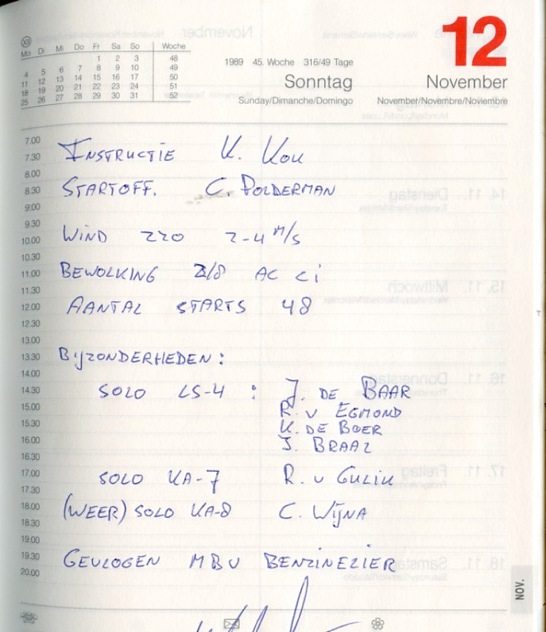 Mo Di Mi Do Fr Sa So Woche
1 2 3 48
4 5 6 7 8 9 10 49
11 12 13 14 15 16 17 50
18 19 20 21 22 23 24 51
25 26 27 28 29 30 31 52
1989 45. Woche 316/49 Tage
Sonntag
Sunday/Dimanche/Domingo
12
November
November/Novembre/Noviembre
7.00
7.30 INSTRUCTIE K. KOK
8.00
8.30 STARTOFF. C. POLDERMAN
9.00
9.30
10.00 WIND 220 2-4 M/S
10.30
11.00 BEWOLKING 2/8 AC CI
11.30
12.00 AANTAL STARTS 48
12.30
13.00
13.30 BIJZONDERHEDEN:
14.00
14.30 SOLO LS-4 : J. DE BAAR
15.00 R. V EGMOND
15.30 K. DE BOER
16.00 J. BRAAZ
16.30
17.00 SOLO KA-7 R. V GULIK
17.30
18.00 (WEER) SOLO KA-8 C. WIJNA
18.30
19.00
19.30 GEVLOGEN MBV BENZINELIER
20.00
NOV.